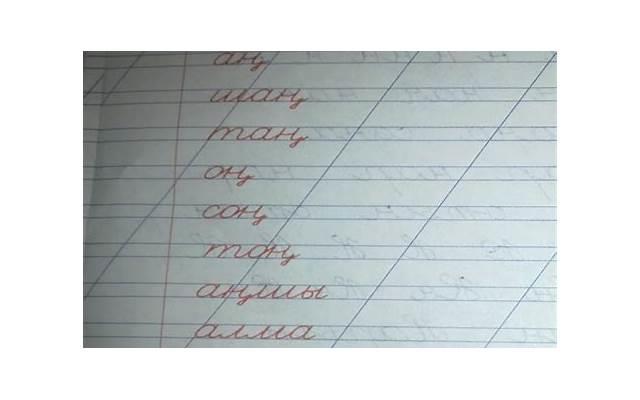 аң
шаң
таң
оң
соң
тоң
аңшы
алма